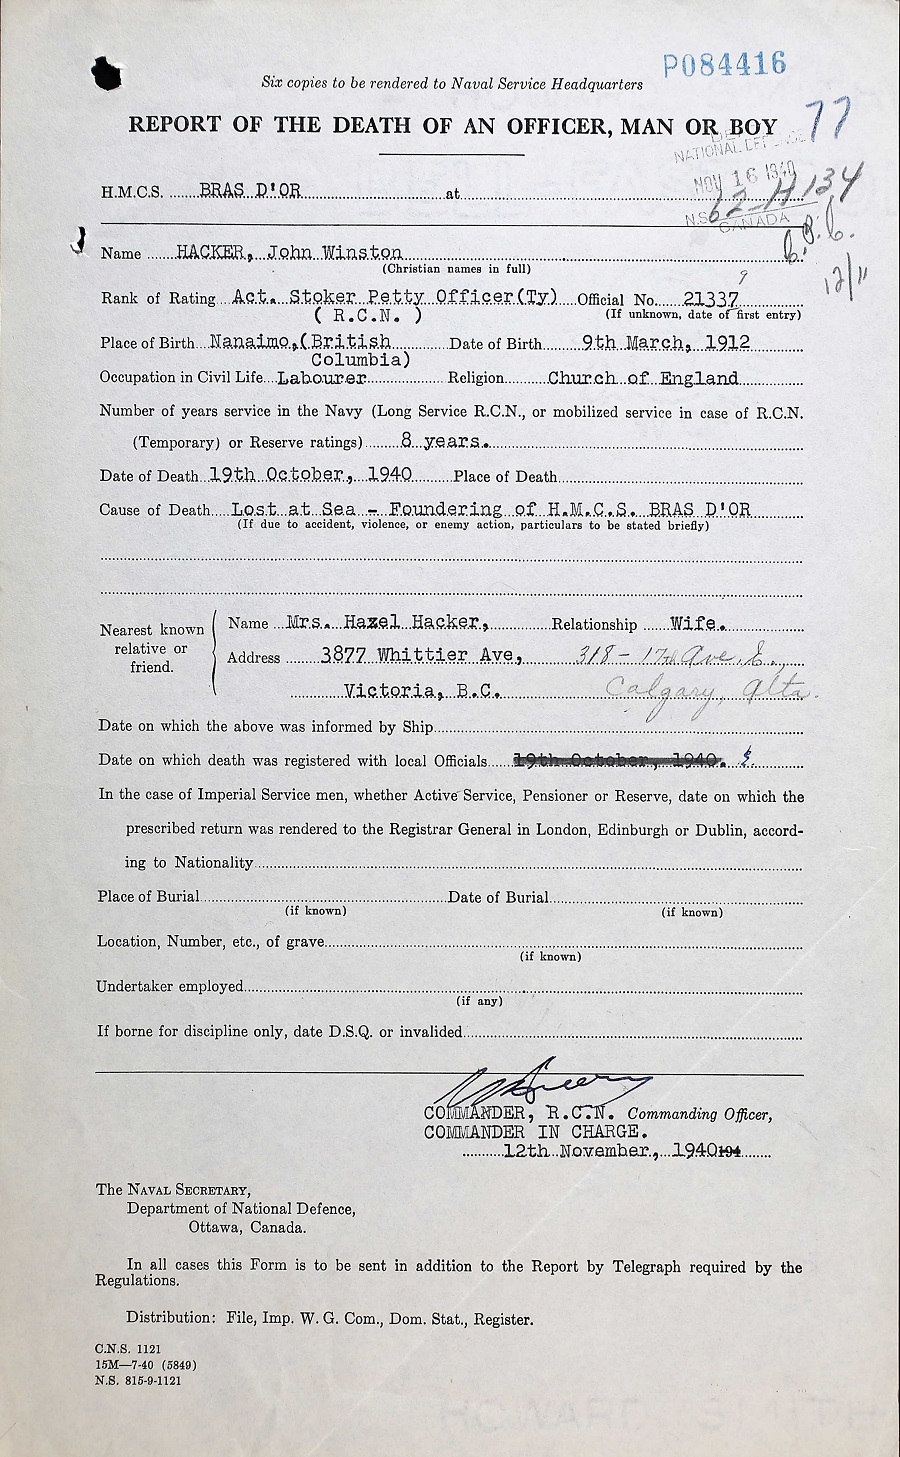 P084416
Six copies to be rendered to Naval Service Headquarters
REPORT OF THE DEATH OF AN OFFICER, MAN OR BOY
77
NATIONAL DEFENCE
NOV 16 1940
62-H-134
N.S.
CANADA
H.M.C.S. BRAS D'OR at
Name HACKER, John Winston
(Christian names in full)
12/11
9
Rank of Rating Act. Stoker Petty Officer(Ty) Official No. 21337
( R.C.N. ) (If unknown, date of first entry)
Place of Birth Nanaimo,(British Date of Birth 9th March, 1912
Columbia)
Occupation in Civil Life Labourer Religion Church of England
Number of years service in the Navy (Long Service R.C.N., or mobilized service in case of R.C.N.
(Temporary) or Reserve ratings) 8 years.
Date of Death 19th October, 1940 Place of Death
Cause of Death Lost at Sea - Foundering of H.M.C.S. BRAS D'OR
(If due to accident, violence, or enemy action, particulars to be stated briefly)
Nearest known relative or friend.
Name Mrs. Hazel Hacker, Relationship Wife.
Address 3877 Whittier Ave, 318 - 17th Ave. E.,
Victoria, B.C. Calgary, Alta.
Date on which the above was informed by Ship
Date on which death was registered with local Officials 19th October, 1940.
In the case of Imperial Service men, whether Active Service, Pensioner or Reserve, date on which the
prescribed return was rendered to the Registrar General in London, Edinburgh or Dublin, accord-
ing to Nationality
Place of Burial Date of Burial
(if known) (if known)
Location, Number, etc., of grave
(if known)
Undertaker employed
(if any)
If borne for discipline only, date D.S.Q. or invalided
COMMANDER, R.C.N. Commanding Officer,
COMMANDER IN CHARGE.
12th November, 1940 194
The NAVAL SECRETARY,
Department of National Defence,
Ottawa, Canada.
In all cases this Form is to be sent in addition to the Report by Telegraph required by the
Regulations.
Distribution: File, Imp. W. G. Com., Dom. Stat., Register.
C.N.S. 1121
15M—7-40 (5849)
N.S. 815-9-1121